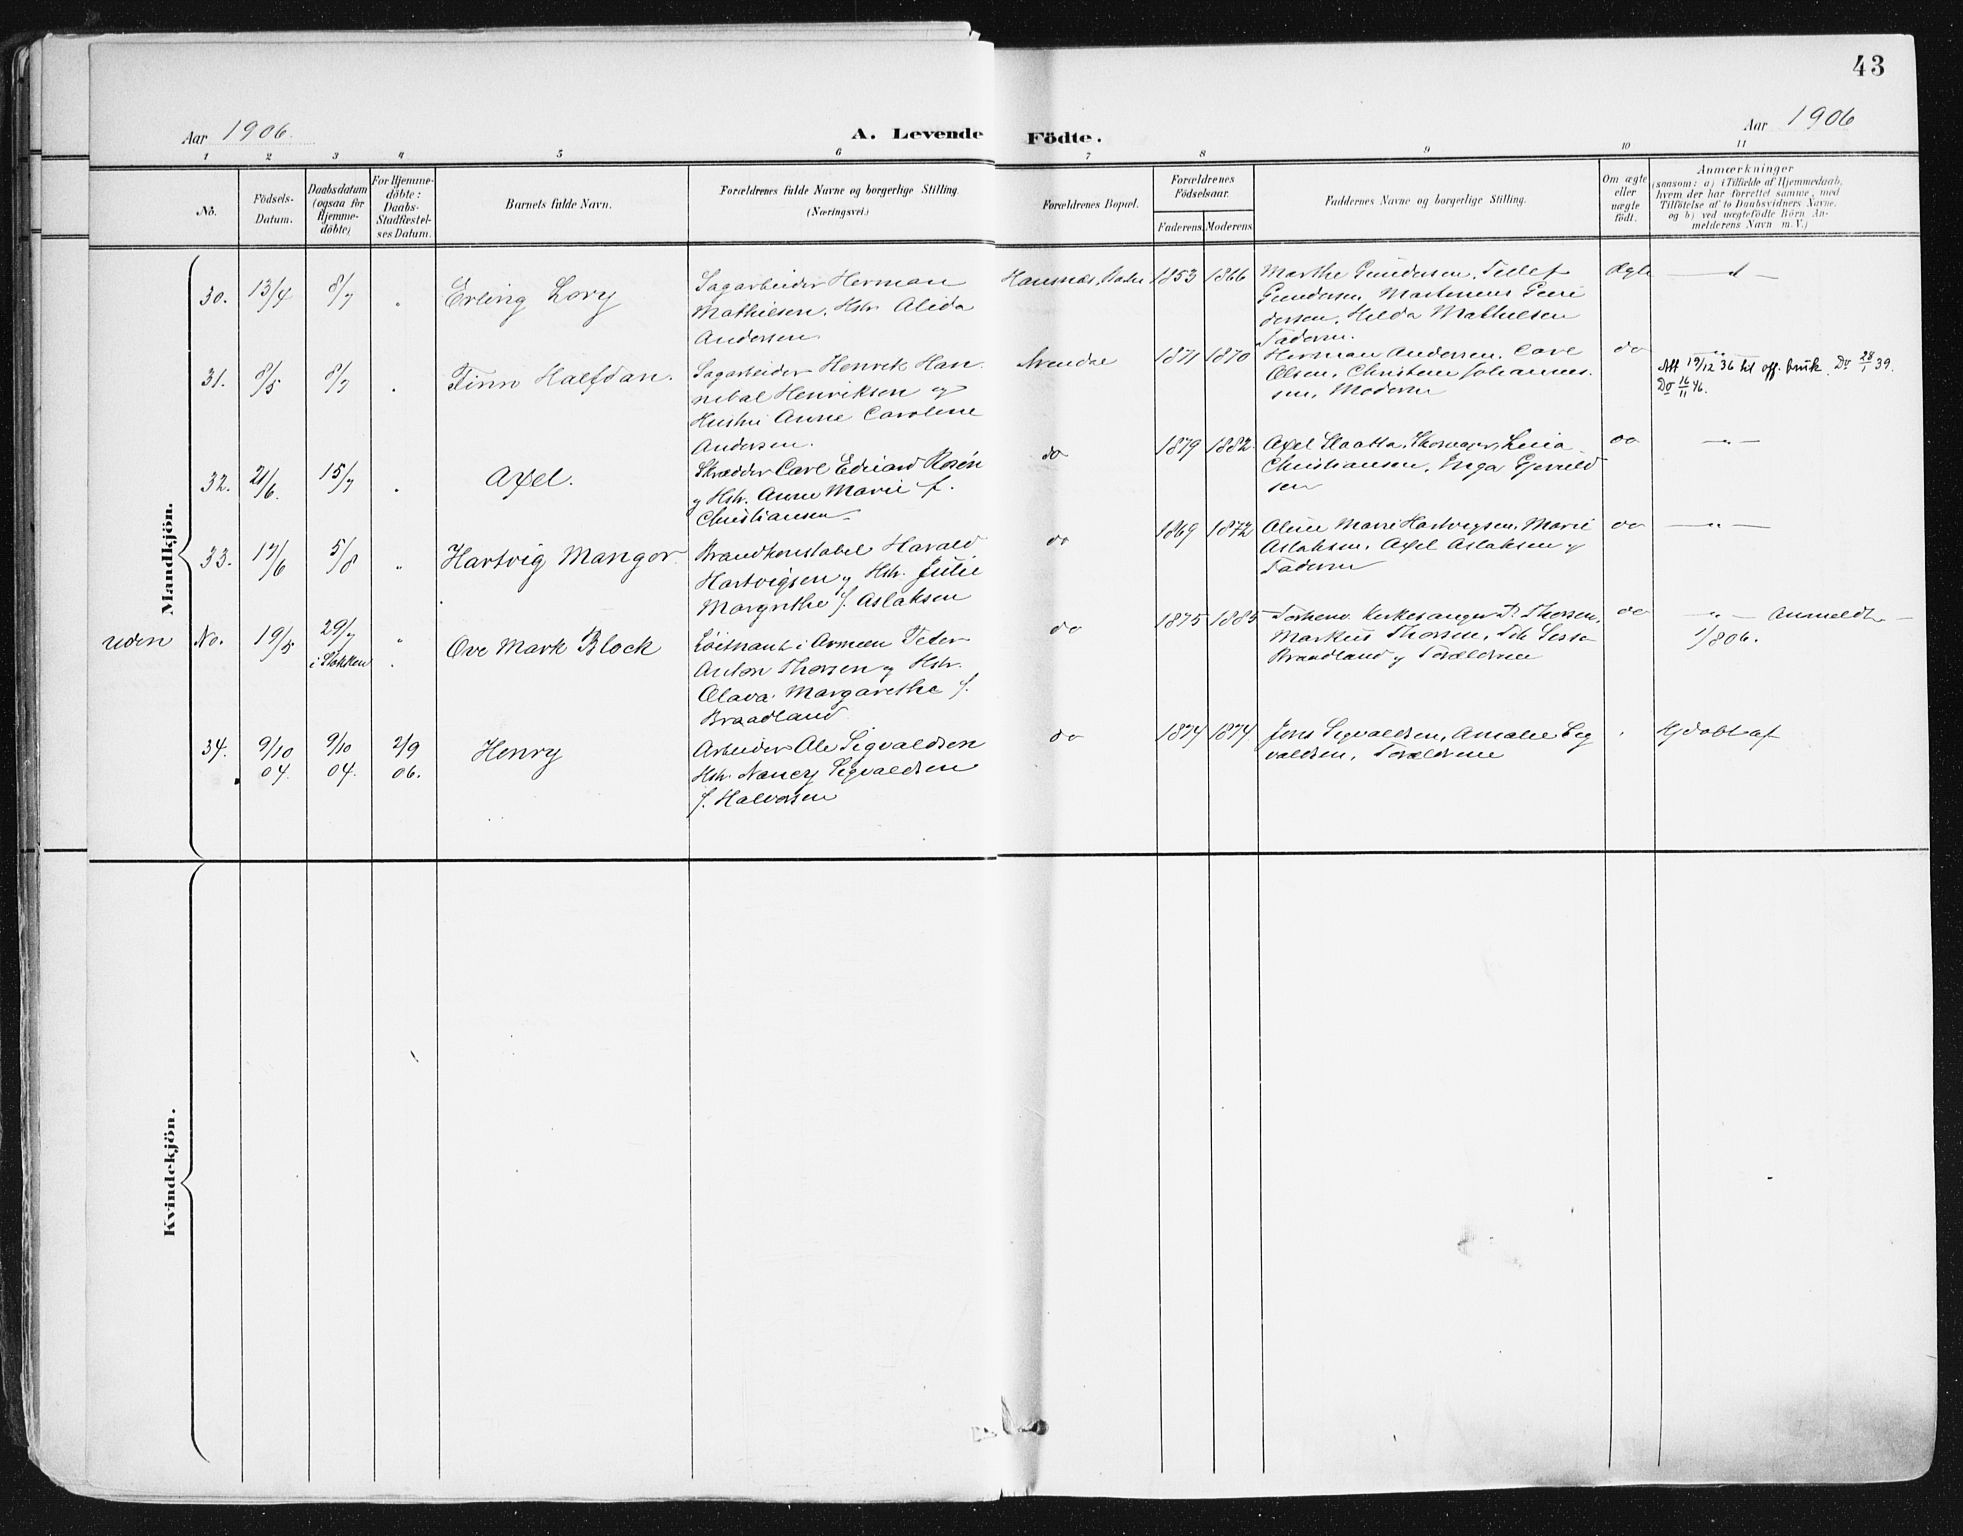 43
Aar 1906.
A. Levende Födte.
Aar 1906
1 2 3 4 5 6 7 8 9 10 11
No.
Födsels-
Datum.
Daabsdatum
(ogsaa for
Hjemme-
döbte)
For Hjemme-
döbte:
Daabs-
Stadfæstel-
ses Datum.
Barnets fulde Navn.
Forældrenes fulde Navne og borgerlige Stilling.
(Næringsvei.)
Forældrenes Bopæl.
Forældrenes
Födselsaar.
Faderens Moderens
Faddernes Navne og borgerlige Stilling.
Om ægte
eller
uægte
födt.
Anmærkninger
(saasom: a) i Tilfælde af Hjemmedaab,
hvem der har forrettet samme, med
Tilföielse af to Daabsvidners Navne,
og b) ved uægtefödte Börn An-
melderens Navn m. V.)
Mandkjön.
30. 13/4 8/7 " Erling Lovy
Sagarbeider Herman
Mathiesen. Hstr. Alida
Andersen
1853 1866
Marthe Gundersen, Tellef
Gundersen, Gun
dersen, Hilda Mathiesen
Faderen.
Ægte
31. 8/5 8/7 " Finn Halfdan.
Sagarbeider Henrik Han
nibal Henriksen og
Hustru Anne Caroline
Andersen.
Arendal
1871 1870
Herman Andersen, Carl
Olsen, Christine Johannes-
sen, Moderen
do
Att 19/12 36 til off. bruk. Do 28/1 39.
Do 16/11 46.
32. 21/6. 15/7 " Axel.
Skrædder Carl Eduard Rosén
og Hstr. Anne Marie f.
Christiansen
do
1879 1882
Axel Lucia
Christiansen, Inga Gjeruld
sen
do
33. 17/6 5/8 " Hartvig Mangor
Brandkonstabel Harald
Hartvigsen og Hstr. Julie
Margrethe f. Aslaksen
do
1869 1872
Marie Hartvigsen, Marie
Aslaksen, Axel Aslaksen og
Faderen
do
uden No. 19/5 29/7
i Stokken
" Ove Mark Block
Löitnant i Armeen Peder
Anton Thorsen og Hstr.
Olava Margarethe f.
Braadland
do
1875 1885
Forhenv. Kirkesanger P. Thorsen,
Markus Thorsen,
Braadland og Forældrene
do
" Anmeldt
1/8 06.
34. 9/10
04. 9/10
04. 2/9
06. Henry
Arbeider Ole Sigvaldsen
Hstr. Nancy Sigvaldsen
f. Halvorsen
do
1874 1874
Jens Sigvaldsen, Amalie Sig
valdsen, Forældrene
Hjdöbt af
Kvindekjön.